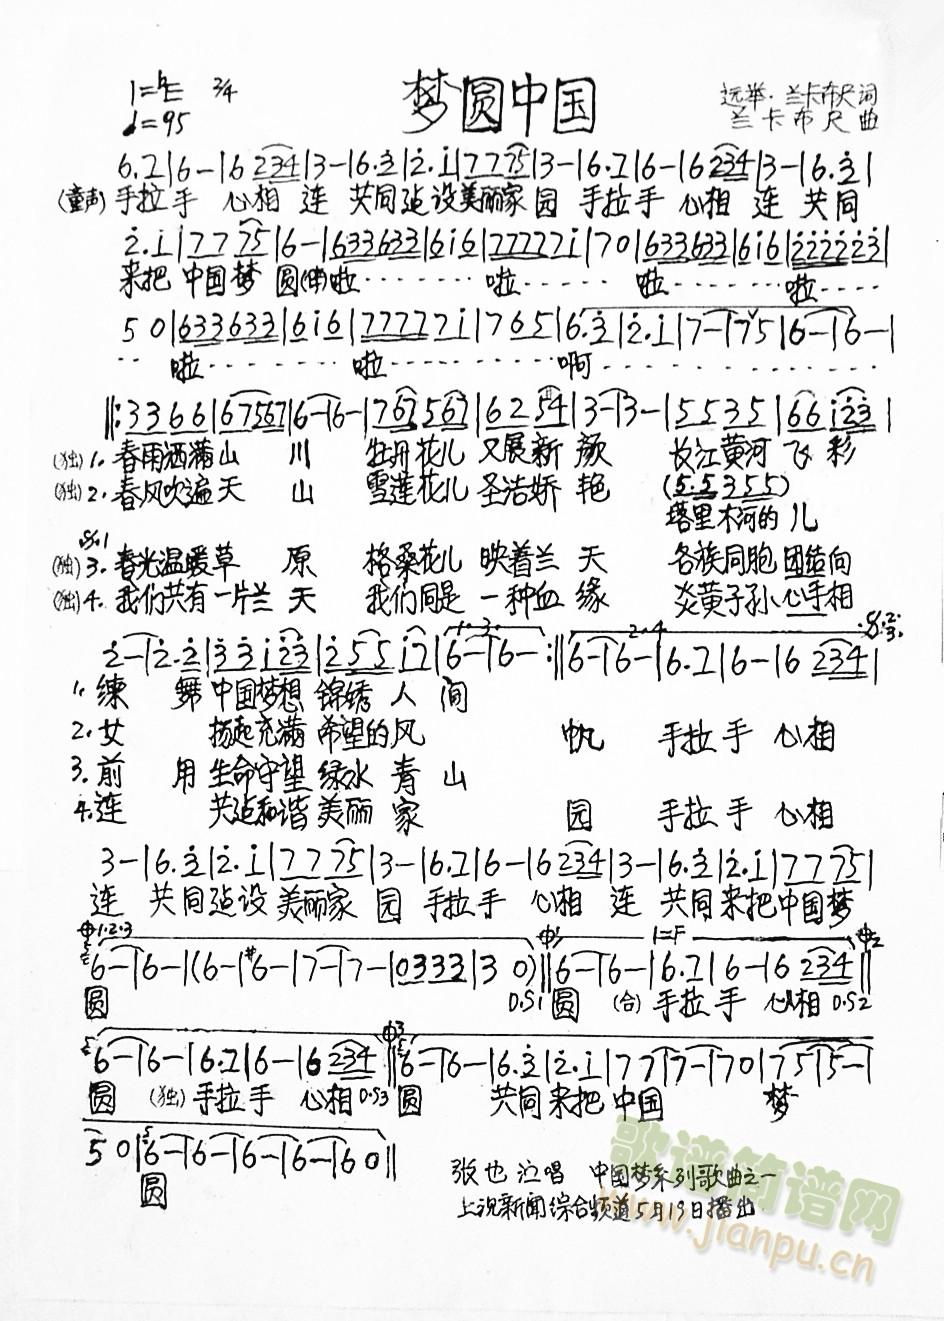 1=♭E 2/4 梦圆中国 远举·兰卡布尺词
♩=95 兰卡布尺曲
6.7|6-|6 234|3-|6.3|2.1|7775|3-|6.7|6-|6 234|3-|6.3|
(童声)手拉手 心相 连 共同 建设美丽家 园 手拉手 心相 连 共同
2.1|7775|6-|633633|616|777771|70|633633|616|2222223|
来把 中国梦 圆(伴)啦……… 啦…… 啦…… 啦……
50|633633|616|777771|765|6.3|2.1|7-|75|6-|6-|
‥ 啦……… 啦……… 啊…………
‖:3366|67567|6-|6-|767567|6254|3-|3-|5535|66123|
(独)1.春雨洒满山 川 牡丹花儿 又展新 颜 长江黄河 飞 彩
(独)2.春风吹遍天 山 雪莲花儿 圣洁娇 艳 (5.5355)
塔里木河的 儿
(独)3.春光温暖草 原 格桑花儿 映着兰 天 各族同胞 团结向
(独)4.我们共有一片兰 天 我们同是 一种血 缘 炎黄子孙 心手相
2-|2.2|33123|25517|6-|6-:‖6-|6-|6.7|6-|6 234|
1.练 舞 中国梦想 锦绣 人 间
2.女 扬起充满 希望的风 帆 手拉手 心相
3.前 用 生命守望 绿水 青 山
4.连 共建和谐 美丽 家 园 手拉手 心相
3-|6.3|2.1|7775|3-|6.7|6-|6 234|3-|6.3|2.1|7775|
连 共同 建设 美丽家 园 手拉手 心相 连 共同 来把 中国梦
1·2·3 1=F
6-|6-|(6-|#6-|7-|7-|0333|30)‖6-|6-|6.7|6-|6 234‖
圆 D.S1 圆 (合)手拉手 心相 D.S2
6-|6-|6.7|6-|6 234‖6-|6-|6.3|2.1|77|7-|70|75|5-|
圆 (独)手拉手 心相 D.S3 圆 共同 来把 中国 梦
50|6-|6-|6-|6-|60‖
圆
张也 演唱 中国梦系列歌曲之一
上视新闻综合频道5月19日播出
歌谱简谱网
www.jianpu.cn